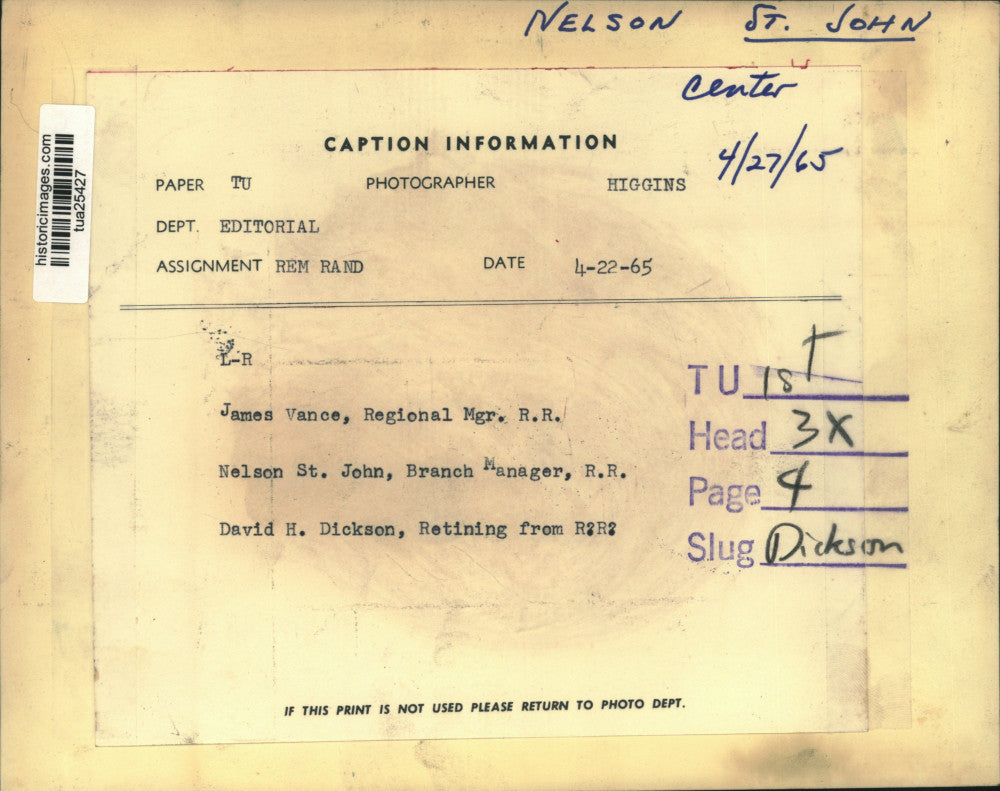 NELSON ST. JOHN
center
4/27/65
historicimages.com
tua25427
CAPTION INFORMATION
PAPER TU PHOTOGRAPHER HIGGINS
DEPT. EDITORIAL
ASSIGNMENT REM RAND DATE 4-22-65
L-R
James Vance, Regional Mgr. R.R.
Nelson St. John, Branch Manager, R.R.
David H. Dickson, Retining from R?R?
TU 1st
Head 3X
Page 4
Slug Dickson
IF THIS PRINT IS NOT USED PLEASE RETURN TO PHOTO DEPT.